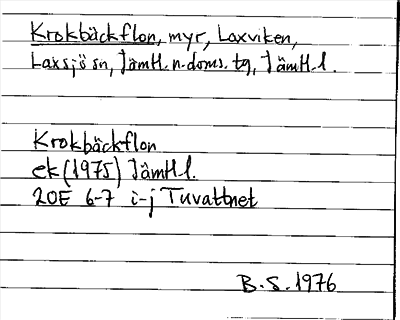 Krokbäckflon, myr, Laxviken,
Laxsjö sn, Jämtl. n. doms. tg, Jämtl. l.
Krokbäckflon
ek (1975) Jämtl l.
20E 6-7 i-j Tuvattnet
B.S. 1976